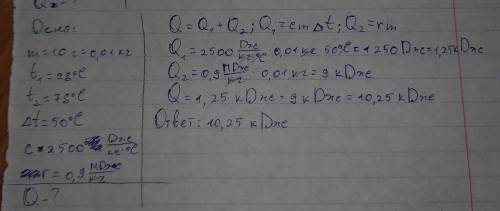 Q-?
Дано:
m=10г=0,01кг
t₁=28°C
t₂=78°C
Δt=50°C
c=2500 Дже/кг·°C
r=0,9 МДже/кг
Q-?
Q=Q₁+Q₂; Q₁=cmΔt; Q₂=rm
Q₁=2500 Дже/кг·°C · 0,01кг · 50°C=1250Дже=1,25кДже
Q₂=0,9 МДже/кг · 0,01кг=9кДже
Q=1,25кДже=9кДже=10,25кДже
Ответ: 10,25кДже